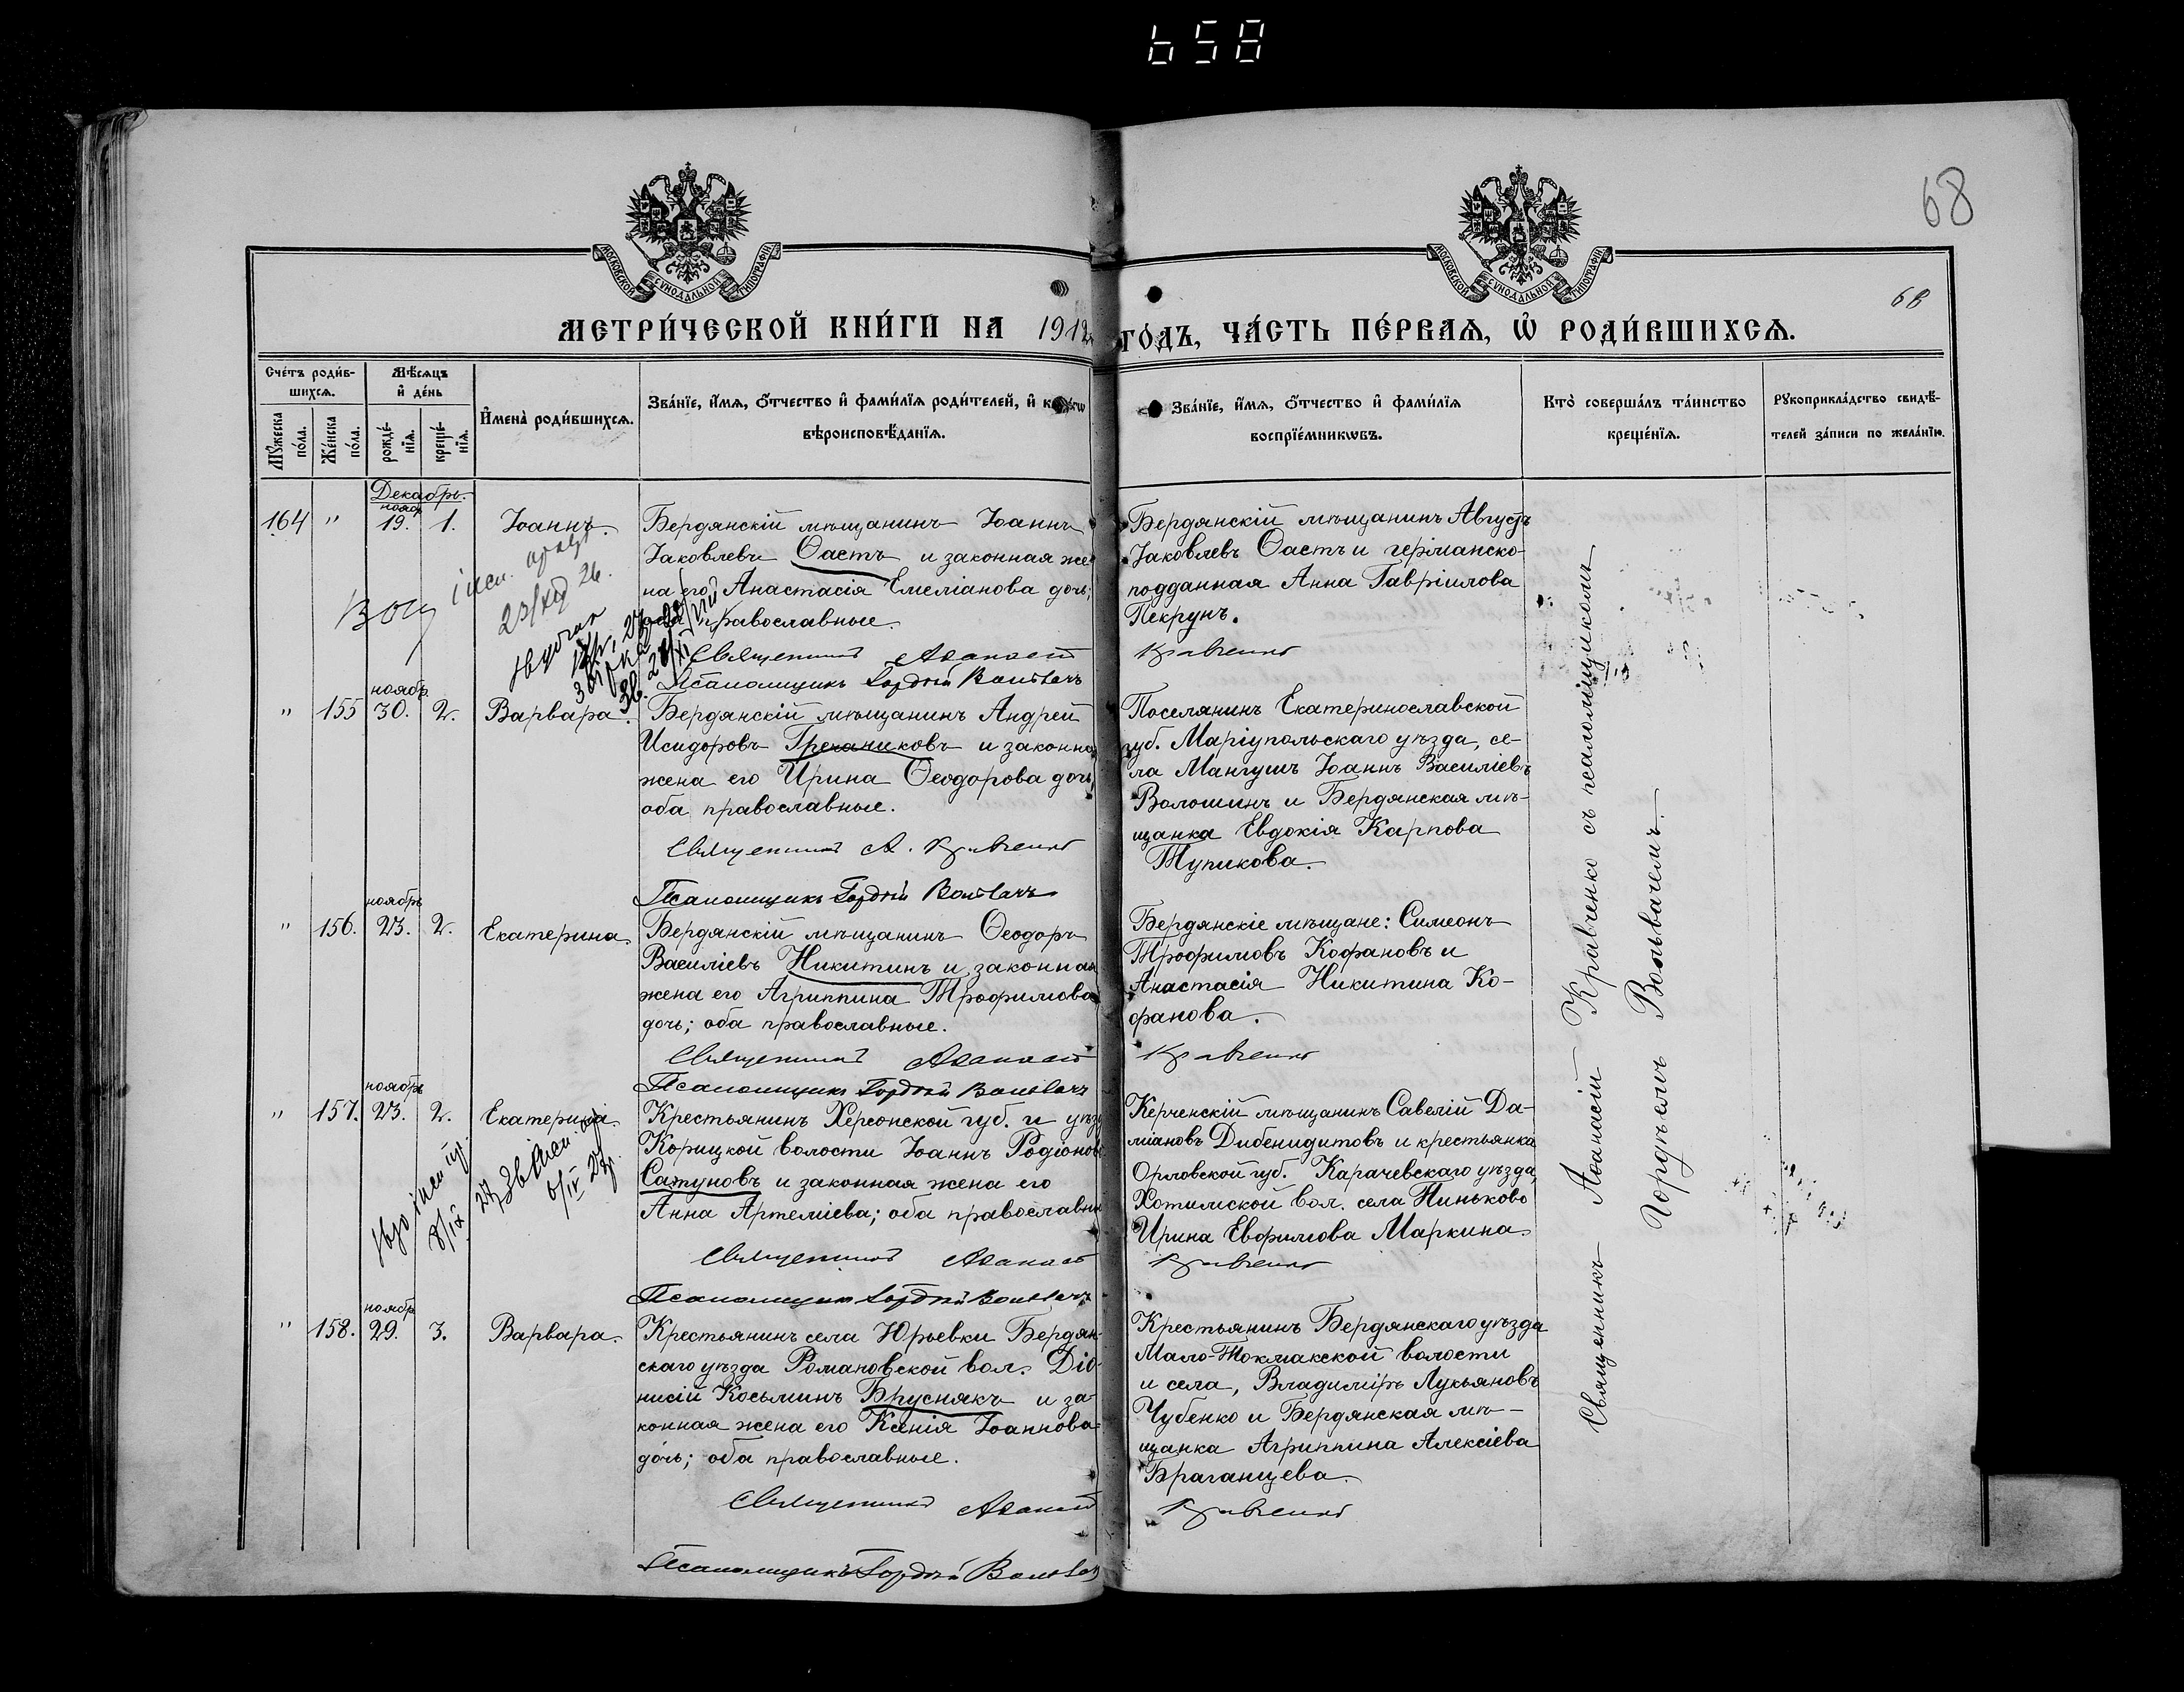 658
68
68
МОСКОВСКОЙ СѴНОДАЛЬНОЙ ТИПОГРАФІИ
МОСКОВСКОЙ СѴНОДАЛЬНОЙ ТИПОГРАФІИ
МЕТРИ́ЧЕСКОЙ КНИ́ГИ НА 1912 ГО́ДЪ, ЧА́СТЬ ПЕ́РВАѦ, Ѡ҆ РОДИ́ВШИХСѦ.
Сче́тъ роди́в-
шихсѧ.
Мꙋ́жеска
по́ла.
Же́нска
по́ла.
Мѣ́сѧцъ
и҆ де́нь
рожде́-
нїѧ.
креще́-
нїѧ.
И҆мена̀ роди́вшихсѧ.
Зва́нїе, и҆́мѧ, ѻ҆́тчество и҆ фами́лїѧ роди́телей, и҆
вѣроисповѣ́данїѧ.
Зва́нїе, и҆́мѧ, ѻ҆́тчество и҆ фами́лїѧ
воспрїе́мникѡвъ.
Кто̀ соверша́лъ та́инство
креще́нїѧ.
Рꙋкоприкла́дство свидѣ́-
телей за́писи по жела́нїю.
Декабрь.
нояб
164 " 19. 1. Іоаннъ.
Бердянскій мѣщанинъ Іоаннъ
Іаковлевъ Фастъ и законная же
на его Анастасія Емеліанова дочь;
православные.
Священникъ Аѳанасій Кравченко
Псаломщикъ Гордѣй Вольвачъ
Бердянскій мѣщанинъ Августъ
Іаковлевъ Фастъ и германско-
подданная Анна Гавріилова
Пекрунъ.
23/XII 26.
ноябр
" 155 30. 2. Варвара.
Бердянскій мѣщанинъ Андрей
Исидоровъ Гречаниковъ и законна
жена его Ирина Ѳеодорова дочь
оба православные.
Священникъ А. Кравченко
Псаломщикъ Гордѣй Вольвачъ
Поселянинъ Екатеринославской
губ. Маріупольскаго уѣзда, се-
ла Мангушъ Іоаннъ Василіевъ
Волошинъ и Бердянская мѣ-
щанка Евдокія Карпова
Тупикова.
ноябрь
" 156. 23. 2. Екатерина.
Бердянскій мѣщанинъ Ѳеодоръ
Василіевъ Никитинъ и законная
жена его Агриппина Трофимова
дочь; оба православные.
Священникъ Аѳанасій Кравченко
Псаломщикъ Гордѣй Вольвачъ
Бердянскіе мѣщане: Симеонъ
Трофимовъ Кофановъ и
Анастасія Никитина Ко-
фанова.
ноябрь
" 157. 23. 2. Екатерина.
Крестьянинъ Херсонской губ. и уѣз
Корицкой волости Іоаннъ Родіонов
Сатуновъ и законная жена его
Анна Артеміева; оба православны
Священникъ Аѳанасій Кравченко
Псаломщикъ Гордѣй Вольвачъ
Керченскій мѣщанинъ Савелій Да-
міановъ Дибенидитовъ и крестьянка
Орловской губ. Карачевскаго уѣзда,
Хотимской вол. села Пиньково
Ирина Евфимова Маркина.
ноябр
" 158. 29. 3. Варвара.
Крестьянинъ села Юрьевки Бердян-
скаго уѣзда Романовской вол. Діо-
нисій Косьминъ Бруснякъ и за-
конная жена его Ксенія Іоаннова
дочь; оба православные.
Священникъ Аѳанасій Кравченко
Псаломщикъ Гордѣй Вольвачъ
Крестьянинъ Бердянскаго уѣзда
Мало-Токмакской волости
и села, Владиміръ Лукьяновъ
Чубенко и Бердянская мѣ-
щанка Агриппина Алексіева
Браганцева.
Священникъ Аѳанасій Кравченко съ псаломщикомъ
Гордѣемъ Вольвачемъ.